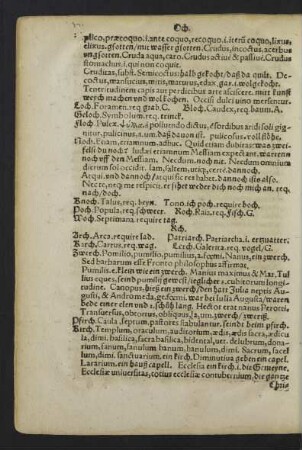 Och.
plico, præcoquo.i.ante coquo, recoquo.i.iterū coquo, lixus
elixus.gsotten/mit wasser gsotten. Crudus, incoctus, acerbus
ungsotten. Cruda aqua, caro. Crudus actiuè & passiuè. Crudus
stomachus.i. qui non coquit.
Cruditas, subst. Semicoctus halb gekocht/daß da quilt. De-
coctus, mansuetus, mitis, maturus, edax, gar.i.wol gekocht.
Tetritudinem capis aut perduribus arte asciscere.mit kunst
werch machen und wol kochen. Occisi dulci uino mersentur.
Loch. Foramen, req.grab. G. Bloch. Caudex, req.baum. A.
Geloch. Symbolum, req.trinck.
Floch. Pulex, à puluendo dictus, è sordibus aridis gi-
gnitur, pulicinus.a.um. daß da von ist. pulicosus, vol flöhe.
Noch. Etiam, etiamnum, adhuc. Quid etiam dubitare? was zwei-
felst du noch? Iudæi etiamnum Messiam expectant. die warten
noch uff den Messiam. Necdum. noch nit. Necdum omnium
dierum sol occidit. Iam, saltem, utiq̃, certè, dannoch.
Atqui, und dannoch. Atqui sic res habet. dannoch ists also.
Necte, necq̃ me respicit. er sihet weder dich noch mich an.
nach/ doch.
Knoch. Talus, req.beyn. Tono, ich poch, require boch.
Poch. Popula, req.schwert. Roch. Raia, req. Fisch. G.
Woch. Septimana, require tag.
Rch.
Arch. Arca, require lad. Patriarch. Patriarcha.i. ertzvatter.
Karch. Carrus, req.wag. Lerch. Galerita, req.vogel. G.
Zwerch. Pomilio, pumilio, pumilus, & Nanus, ein zwerch.
Sed barbarum esse Fronto philosophus affirmat.
Pumilæ. Klein wie ein zwerch. Manius maximus & Mar. Tul
lius eques, seind pumilij gewest/ieglicher 2. cubitorum longi-
tudine. Canopus, hieß ein zwerch/den hatt Julia neptis Augu-
sti, & Andromeda, gedocem, was ber Iulia Augusta, waren
bede einer elen und 2. schů lang. Hector erat nanus Perotti.
Transuersus, obtortus, obliquus, a, um, zwerch/zwerist.
Pferrch. Caula, septum, pastores stabulantur, seind beim pfferrch.
Kirch. Templum, oraculum, auditorium, ædis, ædis sacra, ædicula,
dimi. basilica, sacra basilica, bidental, uet. delubrum, dona-
rium, fanum, fanulum, hanum, hanulum, dimi. Sacrum, sacel-
lum, dimi. sanctuarium, ein kirch. Diminutiua geben ein capel.
Lararium, ein hauß capell. Ecclesia ein kirch.i. die Gemeyne,
Ecclesiæ uniuersitas, totius ecclesiæ contubernium, die gantze
Chris